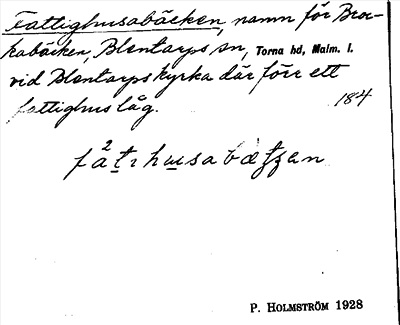 Fattighusabäcken, namn för Brow-
kabäcken, Blentarps sn, Torna hd, Malm. l.
vid Blentarps kyrka där förr ett
fattighus låg. 184
P. HOLMSTRÖM 1928